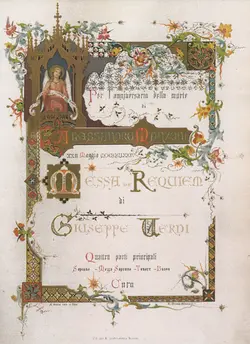 Per l'anniversario della morte
di
Alessandro Manzoni
XXII Maggio MDCCCLXXIV
Messa da Requiem
di
Giuseppe Verdi
Quattro parti principali
Soprano - Mezzo Soprano - Tenore - Basso
e Coro